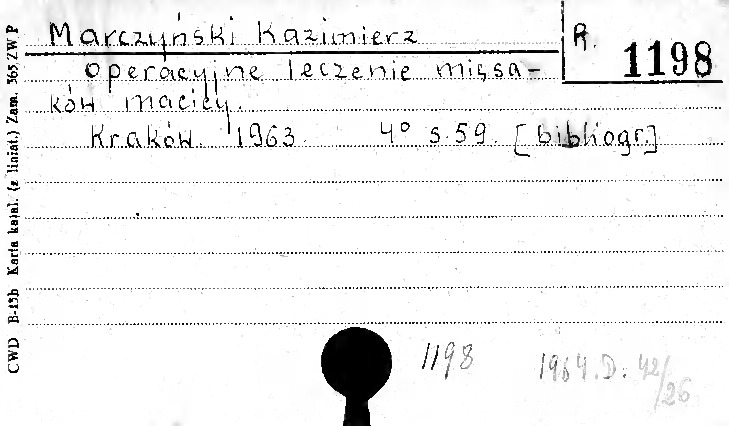 Marczyński Kazimierz
R. 1198
Operacyjne leczenie mięśa-
ków macicy.
Kraków. 1963. 4° s. 59. [bibliogr.]
1198
1964.D. 42/26
CWD B-15b Karta katal. (z liniat.) Zam. 365/ZWP